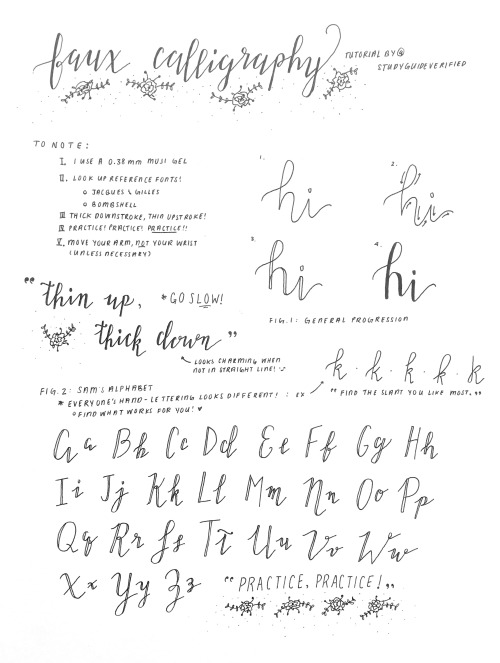 faux calligraphy
TUTORIAL BY @
STUDYGUIDEVERIFIED
TO NOTE:
I. I USE A 0.38 mm MUJI GEL
II. LOOK UP REFERENCE FONTS!
○ JACQUES & GILLES
○ BOMBSHELL
III THICK DOWNSTROKE, THIN UPSTROKE!
IV PRACTICE! PRACTICE! PRACTICE!!
V. MOVE YOUR ARM, NOT YOUR WRIST
(UNLESS NECESSARY)
1.
hi
2.
hi
3.
hi
4.
hi
FIG. 1: GENERAL PROGRESSION
"thin up,
* GO SLOW!
thick down"
LOOKS CHARMING WHEN
NOT IN STRAIGHT LINE!
k . k . k . k . k
"FIND THE SLANT YOU LIKE MOST."
FIG. 2: SAM'S ALPHABET
* EVERYONE'S HAND-LETTERING LOOKS DIFFERENT! : EX
○ FIND WHAT WORKS FOR YOU! ♥
Ga Bb Cc Dd Ee Ff Gg Hh
Ii Jj Kk Ll Mm Nn Oo Pp
Qq Rr Ss Tt Uu Vv Ww
Xx Yy Zz
"PRACTICE, PRACTICE!"